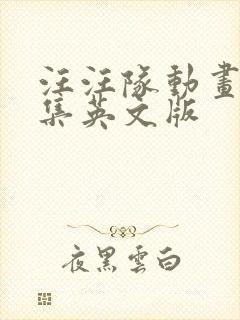 汪汪隊動畫
集英文版
夜黑雲白